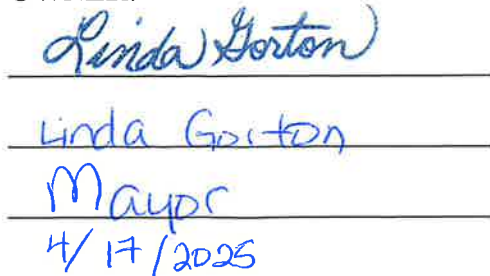 Linda Gorton
Linda Gorton
Mayor
4/17/2025